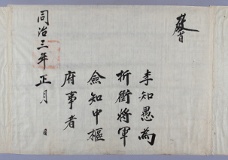 敎旨
李知愚為
折衝將軍
僉知中樞
府事者
同治三年正月 日